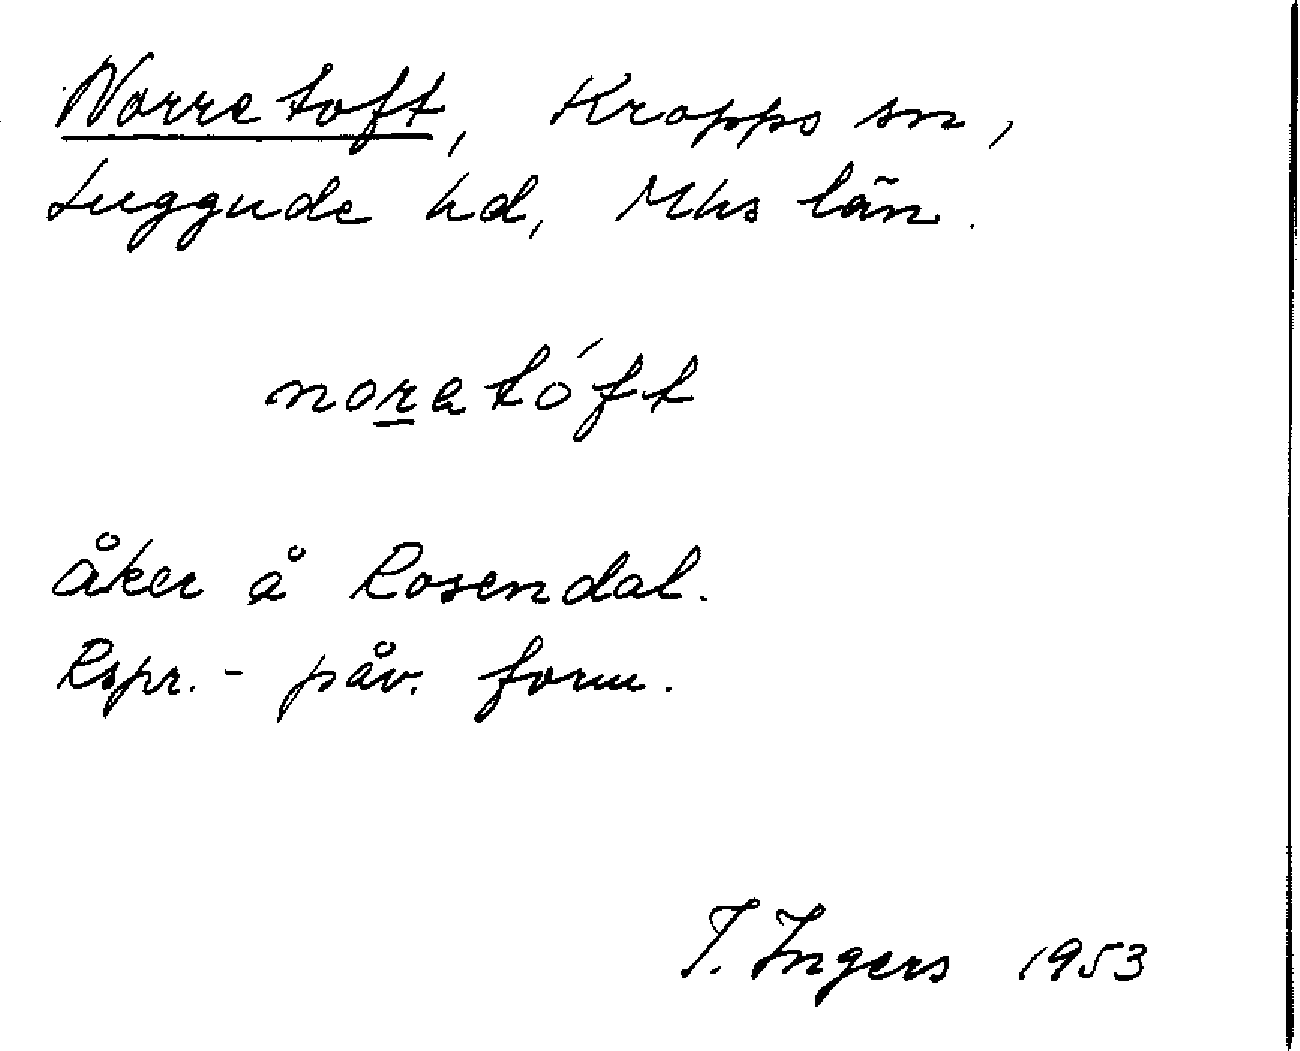 Norretoft, Kropps sn,
Luggude hd, Mhs län.
noratóft
åker å Rosendal.
Rspr. - påv. form.
I. Ingers 1953